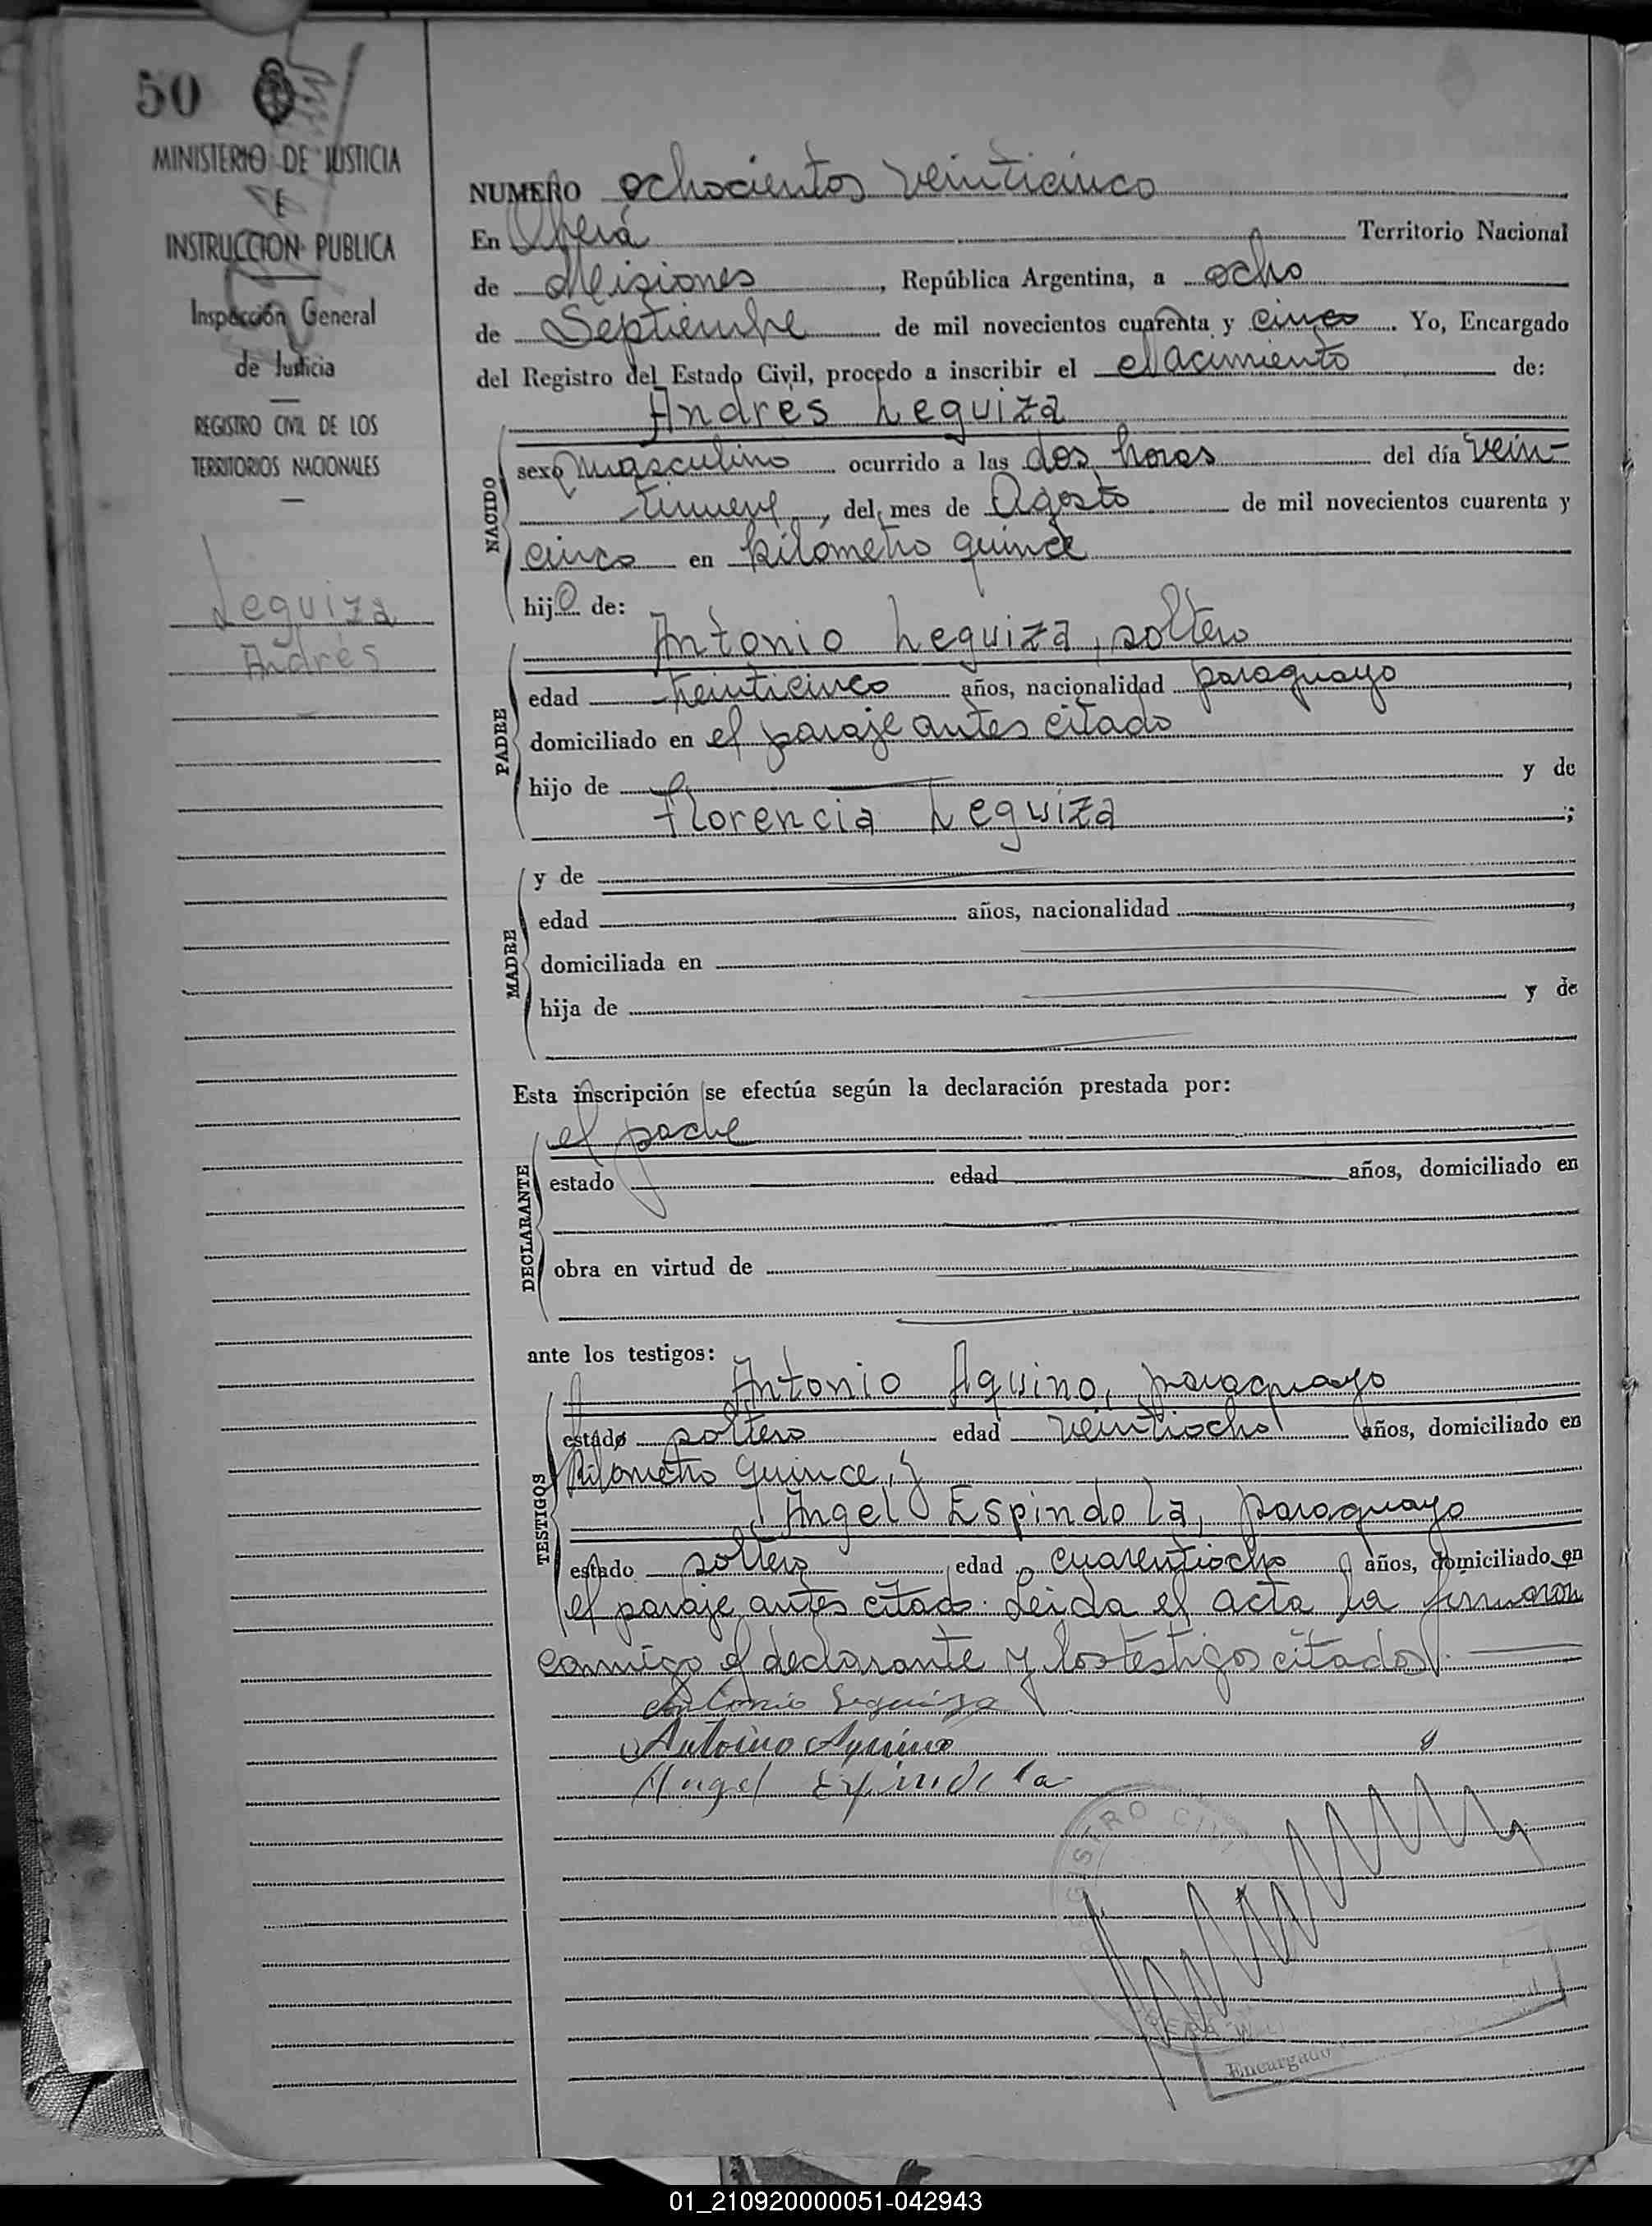 50
MINISTERIO DE JUSTICIA
E
INSTRUCCION PUBLICA
Inspección General
de Justicia
REGISTRO CIVIL DE LOS
TERRITORIOS NACIONALES
Leguiza
Andrés
NUMERO ochocientos veinticinco
En Oberá Territorio Nacional
de Misiones, República Argentina, a ocho
de Septiembre de mil novecientos cuarenta y cinco. Yo, Encargado
del Registro del Estado Civil, procedo a inscribir el Nacimiento de:
Andres Leguiza
NACIDO
sexo masculino ocurrido a las dos horas del día vein-
tinueve, del mes de Agosto de mil novecientos cuarenta y
cinco en kilómetro quince
hijo de:
Antonio Leguiza, soltero
PADRE
edad veinticinco años, nacionalidad paraguayo,
domiciliado en el paraje antes citado
hijo de y de
Florencia Leguiza;
MADRE
y de
edad años, nacionalidad,
domiciliada en
hija de y de
Esta inscripción se efectúa según la declaración prestada por:
DECLARANTE
el padre
estado edad años, domiciliado en
obra en virtud de
ante los testigos:
TESTIGOS
Antonio Aquino, paraguayo
estado soltero edad veintiocho años, domiciliado en
kilometro quince, y
Angel Espindola, paraguayo
estado soltero edad cuarentiocho años, domiciliado en
el paraje antes citado. Leida el acta la firmaron
conmigo el declarante y los testigos citados.
Antonio Leguiza
Antonio Aquino
Angel Espindola
REGISTRO CIVIL
Encargado
01_210920000051-042943